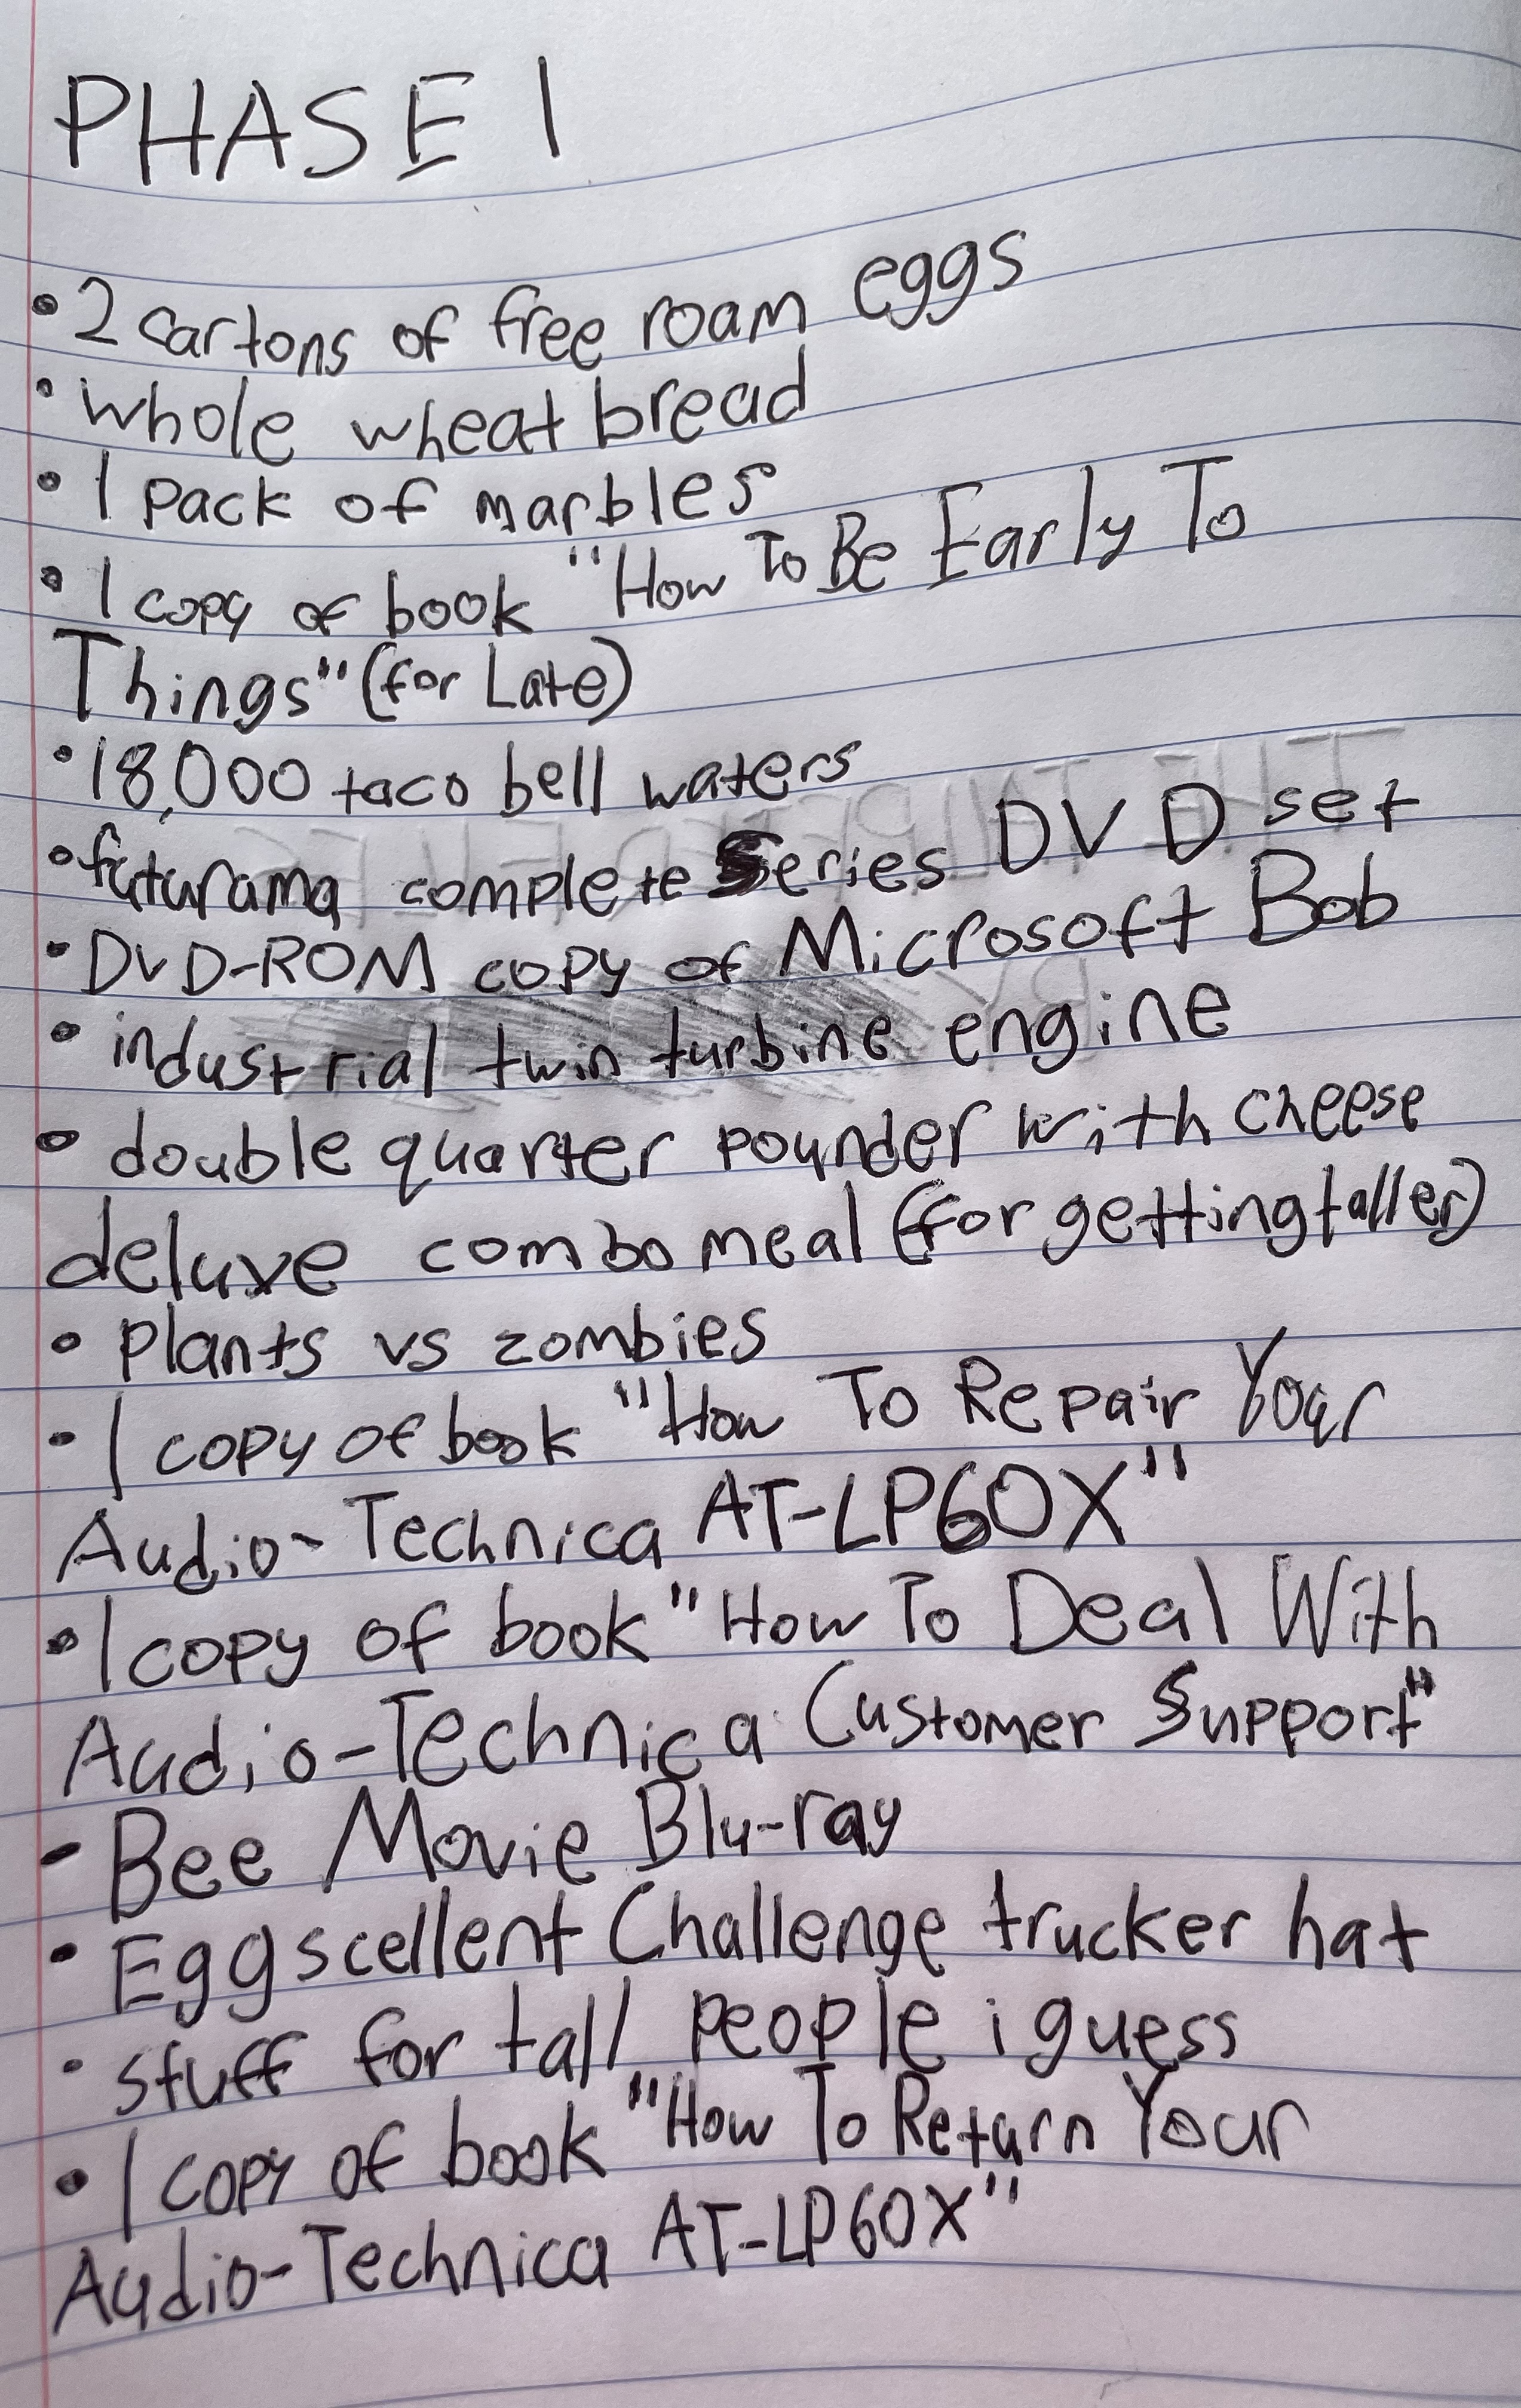 PHASE 1
• 2 cartons of free roam eggs
• whole wheat bread
• 1 pack of marbles
• 1 copy of book "How To Be Early To
Things" (for Late)
• 18,000 taco bell waters
• futurama complete Series DVD set
• DVD-ROM copy of Microsoft Bob
• industrial twin turbine engine
• double quarter pounder with cheese
deluxe combo meal (for getting taller)
• plants vs zombies
• 1 copy of book "How To Repair Your
Audio-Technica AT-LP60X"
• 1 copy of book "How To Deal With
Audio-Technica Customer Support"
- Bee Movie Blu-ray
• Eggscellent Challenge trucker hat
• stuff for tall people i guess
• 1 copy of book "How To Return Your
Audio-Technica AT-LP60X"